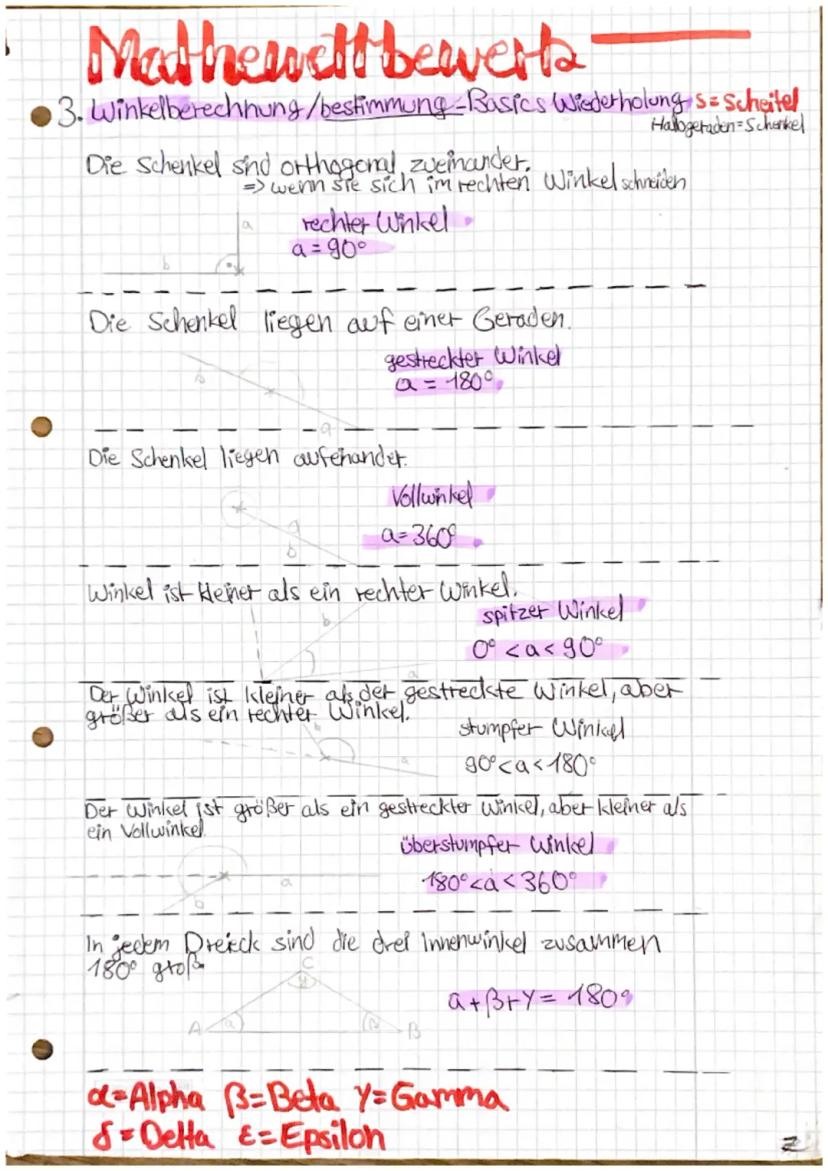 Mathewettbewerb
3. Winkelberechnung/bestimmung-Basics Wiederholung S=Scheitel
Halbgeraden=Schenkel
Die Schenkel sind orthogonal zueinander.
=> wenn sie sich im rechten Winkel schneiden
rechter Winkel
a
a = 90°
b
Die Schenkel liegen auf einer Geraden.
gestreckter Winkel
b
a = 180°
a
Die Schenkel liegen aufeinander.
Vollwinkel
a
a=360°
b
Winkel ist kleiner als ein rechter Winkel.
spitzer Winkel
b
0° <a< 90°
a
Der Winkel ist kleiner als der gestreckte Winkel, aber
größer als ein rechter Winkel.
stumpfer Winkel
b
a
90°<a<180°
Der Winkel ist größer als ein gestreckter Winkel, aber kleiner als
ein Vollwinkel
überstumpfer Winkel
a
180°<a<360°
b
In jedem Dreieck sind die drei Innenwinkel zusammen
180° groß.
C
γ
a+β+γ= 180°
A α β B
α=Alpha β=Beta γ=Gamma
δ=Delta ε=Epsilon
2